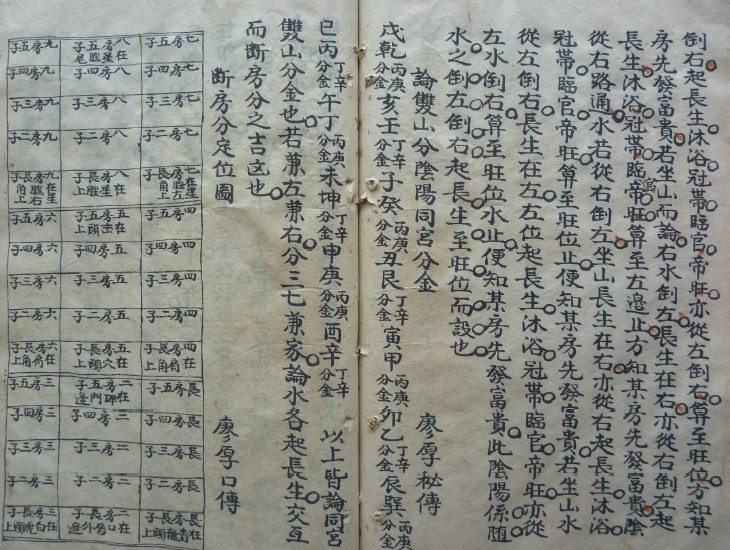 倒右起長生沐浴冠帶臨官帝旺亦從左倒右算至旺位方知某
房先發富貴若坐山而論右水倒左長生在右亦從右倒左起
長生沐浴冠帶臨官帝旺算至左邊止方知某房先發富貴陰
從右路通水若從右倒左坐山長生在右亦從右起長生沐浴
冠帶臨官帝旺算至旺位止便知某房先發富貴若坐山水
從左倒右長生在左左位起長生沐浴冠帶臨官帝旺亦從
左水倒右算至旺位水止便知某房先發富貴此陰陽係隨
水之倒左倒右起長生至旺位而設也
論雙山分陰陽同宮分金 廖厚秘傳
戌乾丙庚分金亥壬丁辛分金子癸丙庚分金丑艮丁辛分金寅甲丙庚分金卯乙丁辛分金辰巽丙庚分金
巳丙丁辛分金午丁丙庚分金未坤丁辛分金申庚丙庚分金酉辛丁辛分金 以上皆論同宮
雙山分金也若兼左兼右分三七兼家論水各起長生交互
而断房分之吉凶也
断房分定位圖 廖厚口傳
七房五子 八房五子在星尾 九房五子
七房四子 八房四子 九房四子
七房三子 八房三子 九房三子
七房二子 八房二子 九房二子
七房長子在星左角上 八房長子在星上 九房長子在星右角上
四房五子 五房五子在頭上 六房五子
四房四子 五房四子 六房四子
四房三子 五房三子 六房三子
四房二子 五房二子 六房二子
四房長子在肩角上 五房長子在穴頭上 六房長子在肩角上
長房五子 二房五子在碑門邊 三房五子
長房四子 二房四子 三房四子
長房三子 二房三子 三房三子
長房二子 二房二子 三房二子
長房長子在青龍頭上 二房長子在口外邊 三房長子在白虎頭上